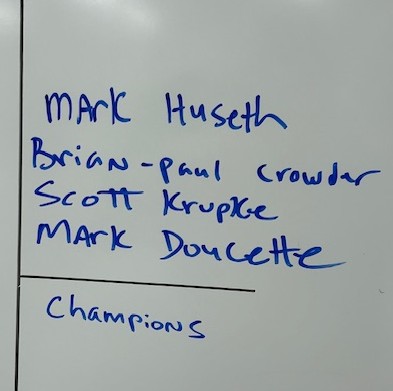 Mark Huseth
Brian-paul Crowder
Scott Krupke
Mark Doucette
Champions